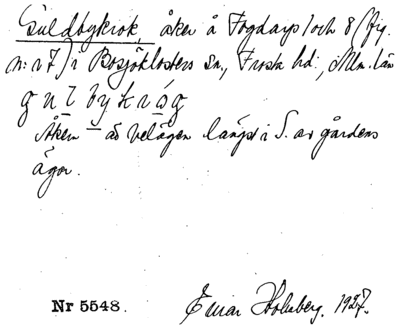 Guldbykrok, åker å Fogdarp 1 och 8 (fig.
n:r 7) i Bosjöklosters sn., Frosta hd., Mlm. län
Åkern är belägen längst i S. av gårdens
ägor.
Nr 5548. Einar Holmberg. 1927.